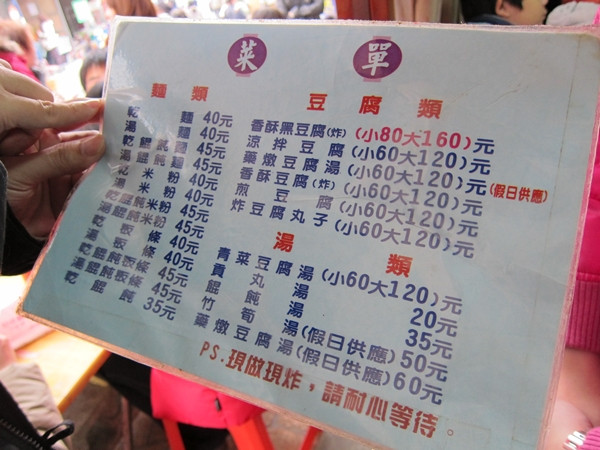 菜單
麵類
乾麵 40元
湯麵 40元
乾餛飩麵 45元
湯餛飩麵 45元
乾米粉 40元
湯米粉 40元
乾餛飩米粉 45元
湯餛飩米粉 45元
乾板條 40元
湯板條 40元
乾餛飩板條 45元
湯餛飩板條 45元
乾餛飩 35元
豆腐類
香酥黑豆腐(炸)(小80大160)元
涼拌豆腐(小60大120)元
藥燉豆腐湯(小60大120)元(假日供應)
香酥豆腐(炸)(小60大120)元
煎豆腐(小60大120)元
炸豆腐丸子(小60大120)元
湯類
青菜豆腐湯(小60大120)元
貢丸湯 20元
餛飩湯 35元
竹筍湯(假日供應)50元
藥燉豆腐湯(假日供應)60元
PS.現做現炸，請耐心等待。